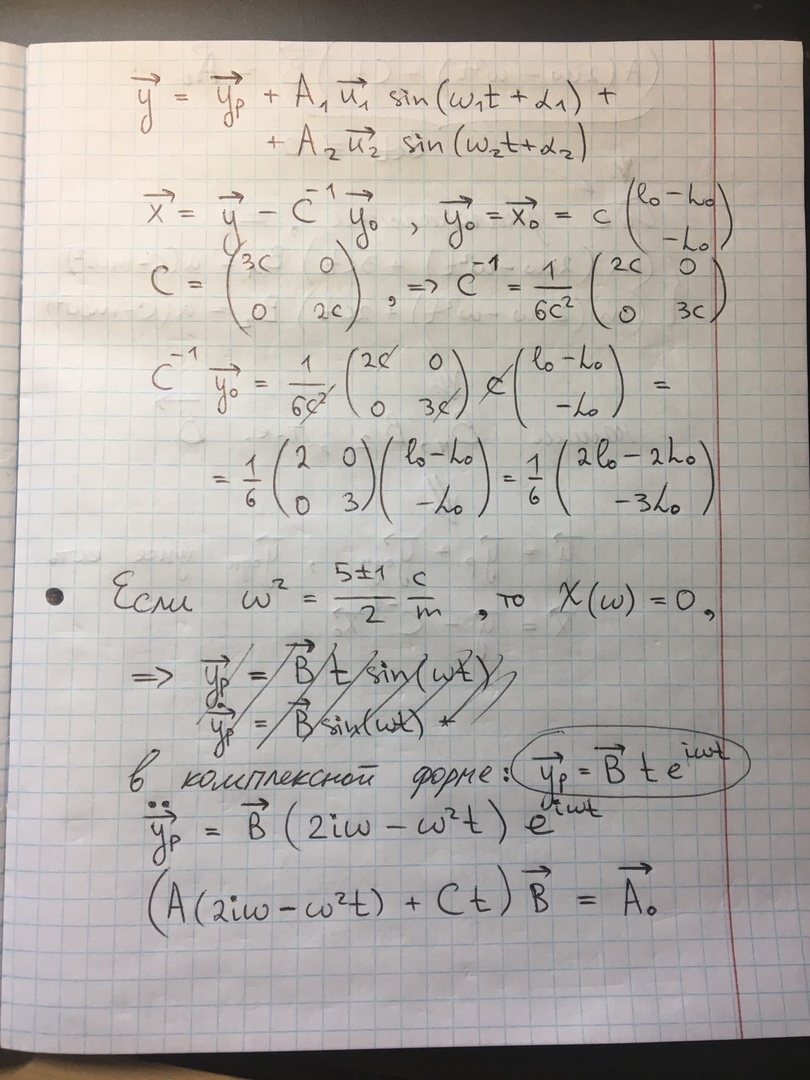 y⃗ = y⃗p + A₁ u⃗₁ sin(ω₁t + α₁) +
+ A₂ u⃗₂ sin(ω₂t + α₂)
x⃗ = y⃗ − C⁻¹ y⃗₀ , y⃗₀ = x⃗₀ = c (l₀ − L₀
−L₀)
C = (3c 0
0 2c) , => C⁻¹ = 1/6c² (2c 0
0 3c)
C⁻¹ y⃗₀ = 1/6c² (2c 0
0 3c) c (l₀ − L₀
−L₀) =
= 1/6 (2 0
0 3) (l₀ − L₀
−L₀) = 1/6 (2l₀ − 2L₀
−3L₀)
• Если ω² = 5±1/2 c/m , то X(ω) = 0,
=> y⃗p = B⃗ t sin(ωt)
ẏ⃗p = B⃗ sin(ωt) +
в комплексной форме: y⃗p = B⃗ t e^{iωt}
ÿ⃗p = B⃗ (2iω − ω²t) e^{iωt}
(A(2iω − ω²t) + Ct) B⃗ = A⃗₀